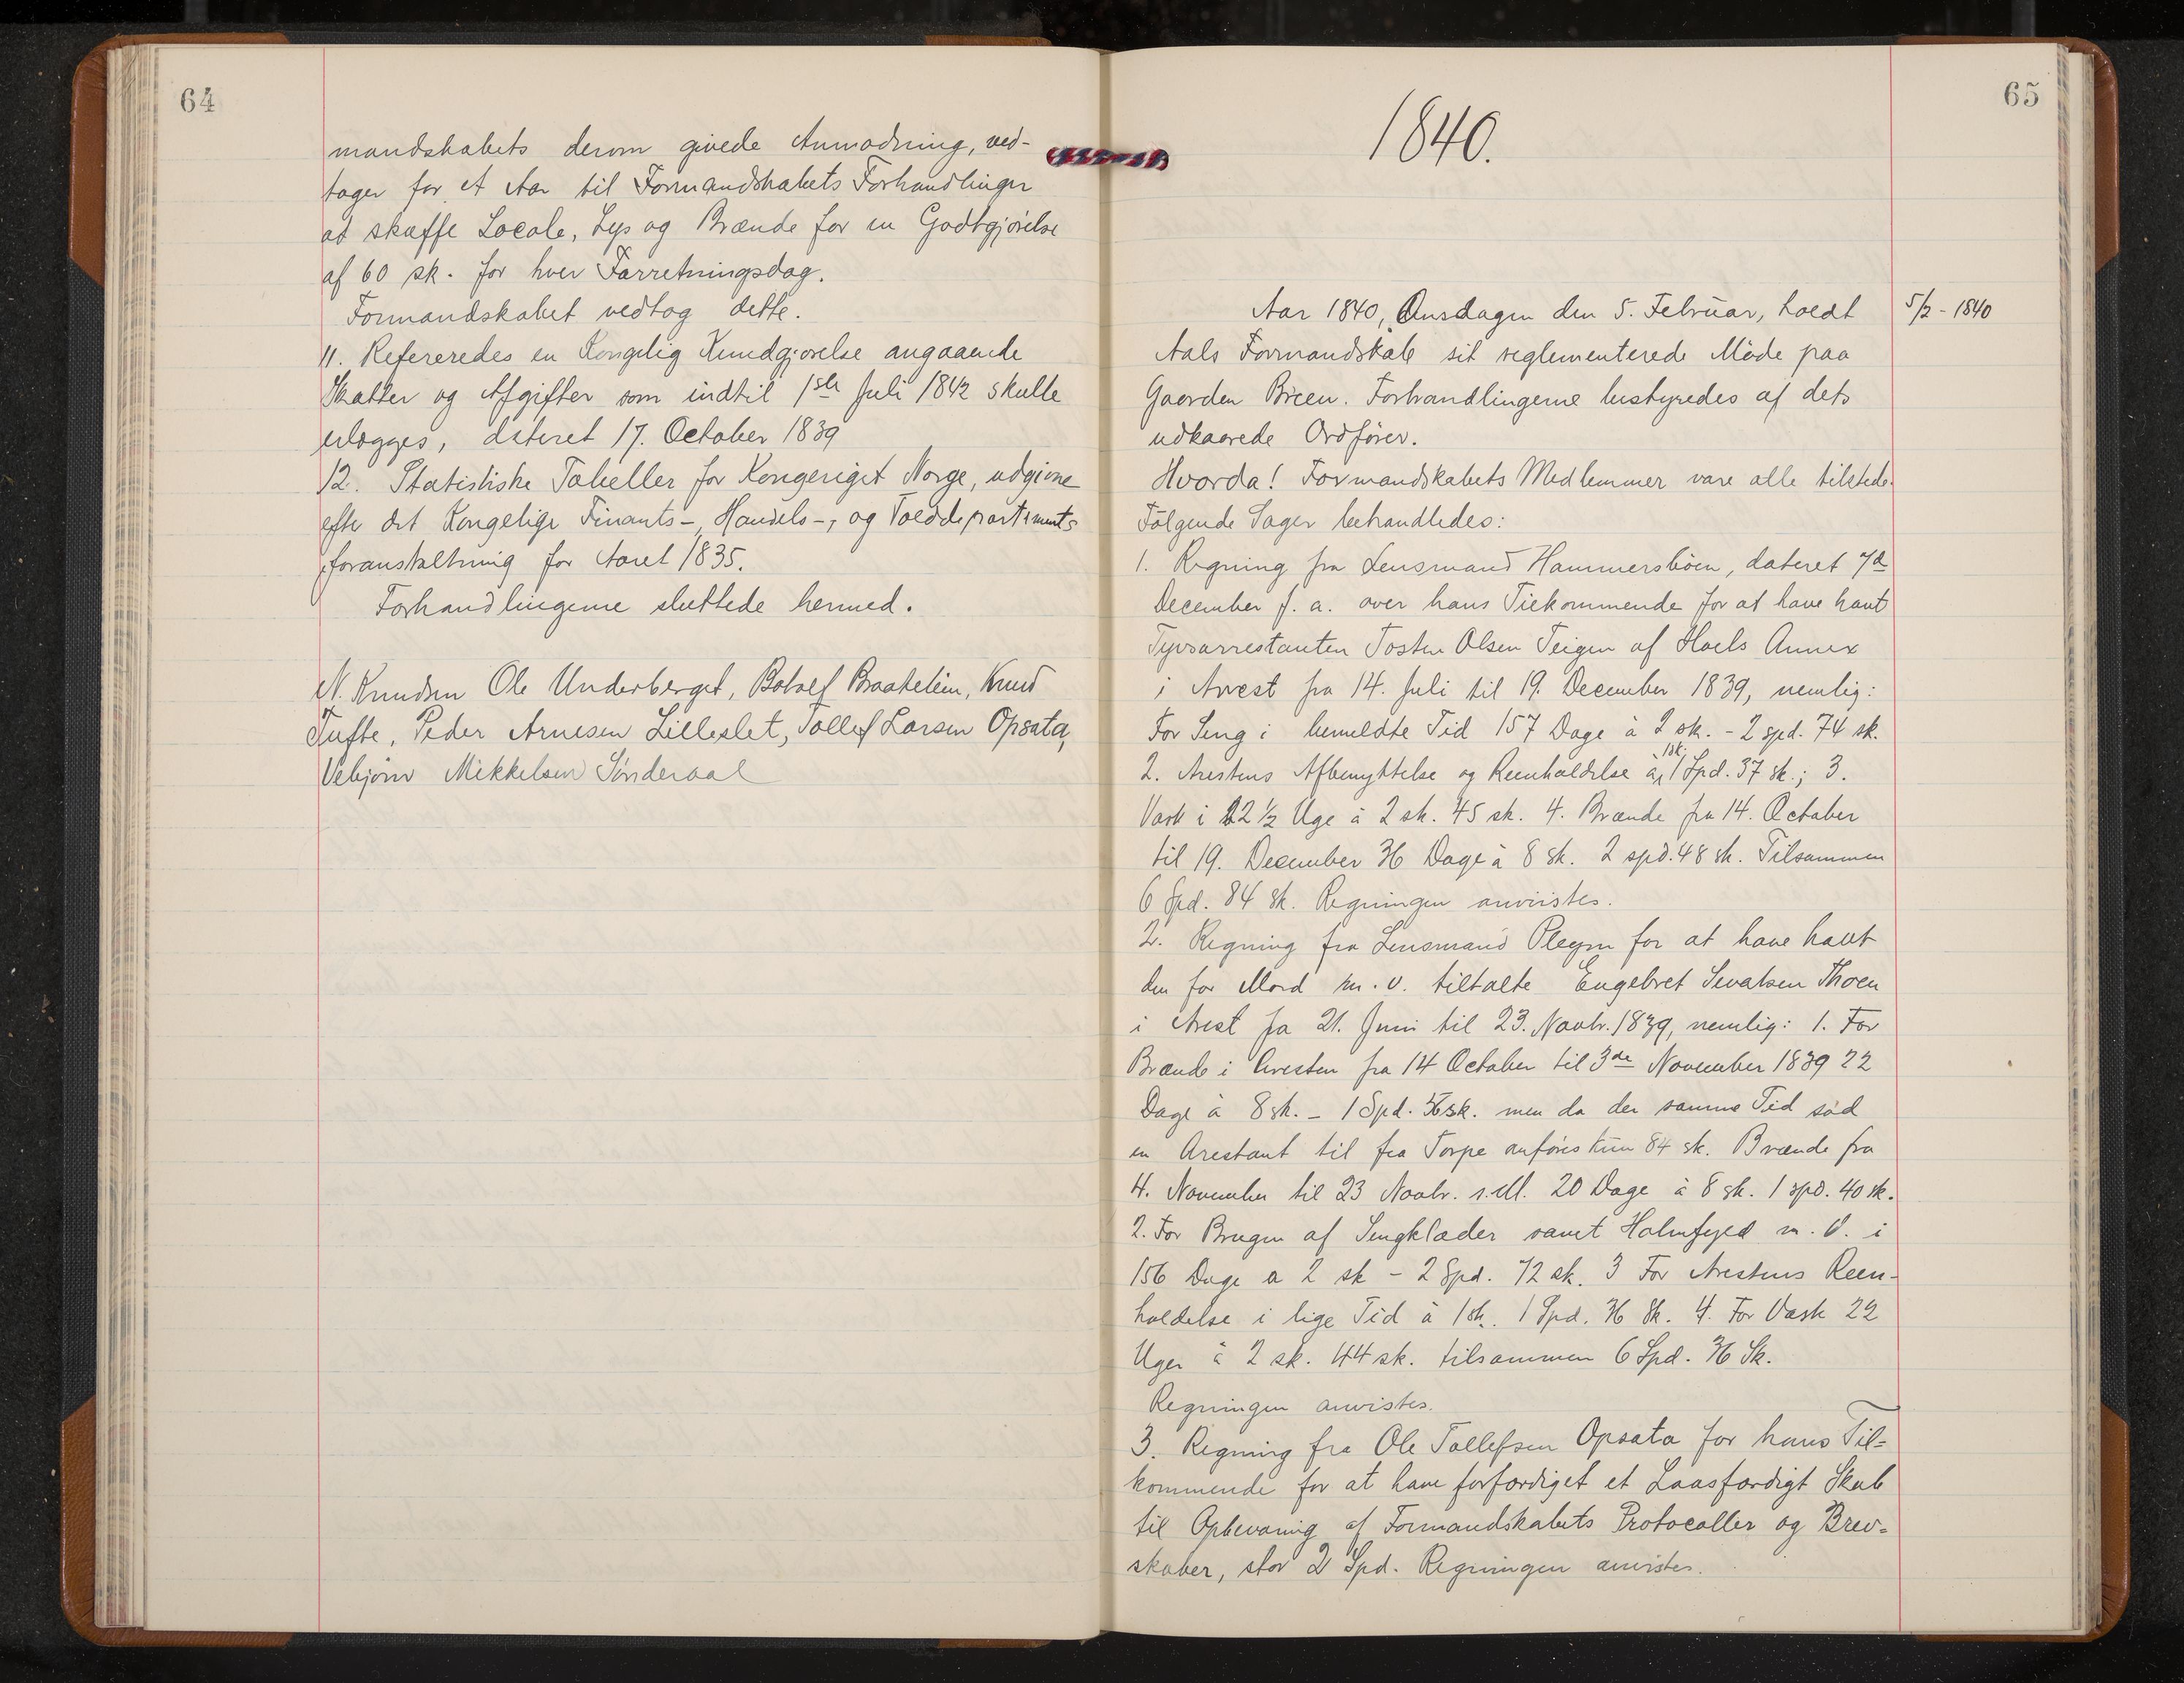 64
mandskabets derom givede Anmodning, ved-
tager for et Aar til Formandskabets Forhandlinger
at skaffe Locale, Lys og Brænde for en Godtgjörelse
af 60 sk. for hver Forretningsdag.
Formandskabet vedtog dette.
11. Refereredes en Kongelig Kundgjörelse angaaende
Skatter og Afgifter som indtil 1ste Juli 1842 skulle
erlægges, dateret 17. October 1839
12. Statistiske Tabeller for Kongeriget Norge, udgivne
efter det Kongelige Finants-, Handels-, og Tolddepartements
foranstaltning for Aaret 1835.
Forhandlingerne sluttede hermed.
N. Knudsen Ole Underberget, Botolf Braatelien, Knud
Tufte, Peder Arnesen Lilleslet, Tollef Larsen Opsata,
Vebjörn Mikkelsen Sönderaal
65
1840.
5/2 - 1840
Aar 1840, Onsdagen den 5. Februar, holdt
Aals Formandskab sit reglementerede Möde paa
Gaarden Breen. Forhandlingerne bestyredes af dets
udkaarede Ordförer.
Hvorda! Formandskabets Medlemmer vare alle tilstede.
Fölgende Sager behandledes:
1. Regning fra Lensmand Hammersböen, dateret 7de
December f. a. over hans Tilkommende for at have havt
Tyvsarrestanten Tosten Olsen Teigen af Hols Annex
i Arrest fra 14. Juli til 19. December 1839, nemlig:
For Seng i bemeldte Tid 157 Dage à 2 sk. - 2 spd. 74 sk.
2. Arestens Afbenyttelse og Reenholdelse à 1 sk. 1 Spd. 37 sk.; 3.
Vask i 22 1/2 Uge à 2 sk. 45 sk. 4. Brænde fra 14. October
til 19. December 36 Dage à 8 sk. 2 spd. 48 sk. Tilsammen
6 Spd. 84 sk. Regningen anvistes.
2. Regning fra Lensmand Pleym for at have havt
den for Mord m. v. tiltalte Engebret Sevatsen Thoen
i Arest fra 21. Juni til 23. Novbr. 1839, nemlig: 1. For
Brænde i Aresten fra 14 October til 3de November 1839 22
Dage à 8 sk. - 1 Spd. 56 sk. men da der samme Tid sad
en Arestant til fra Torpe anföres kun 84 sk. Brænde fra
4. November til 23 Novbr. s. M. 20 Dage à 8 sk. 1 spd. 40 sk.
2. For Brugen af Sengklæder samt Halmfyld m. V. i
156 Dage a 2 sk - 2 Spd. 72 sk. 3 For Arestens Reen-
holdelse i lige Tid à 1 sk. 1 Spd. 36 Sk. 4. For Vask 22
Uger à 2 sk. 44 sk. tilsammen 6 Spd. 36 Sk.
Regningen anvistes.
3. Regning fra Ole Tollefsen Opsata for hans Til-
kommende for at have forfærdiget et Laasfærdigt Skab
til Opbevaring af Formandskabets Protocoller og Brev-
skaber, stor 2 Spd. Regningen anvistes.